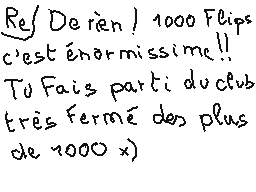 Re/ De rien! 1000 Flips
c'est énormissime!!
Tu Fais parti du club
très Fermé des plus
de 1000 x)